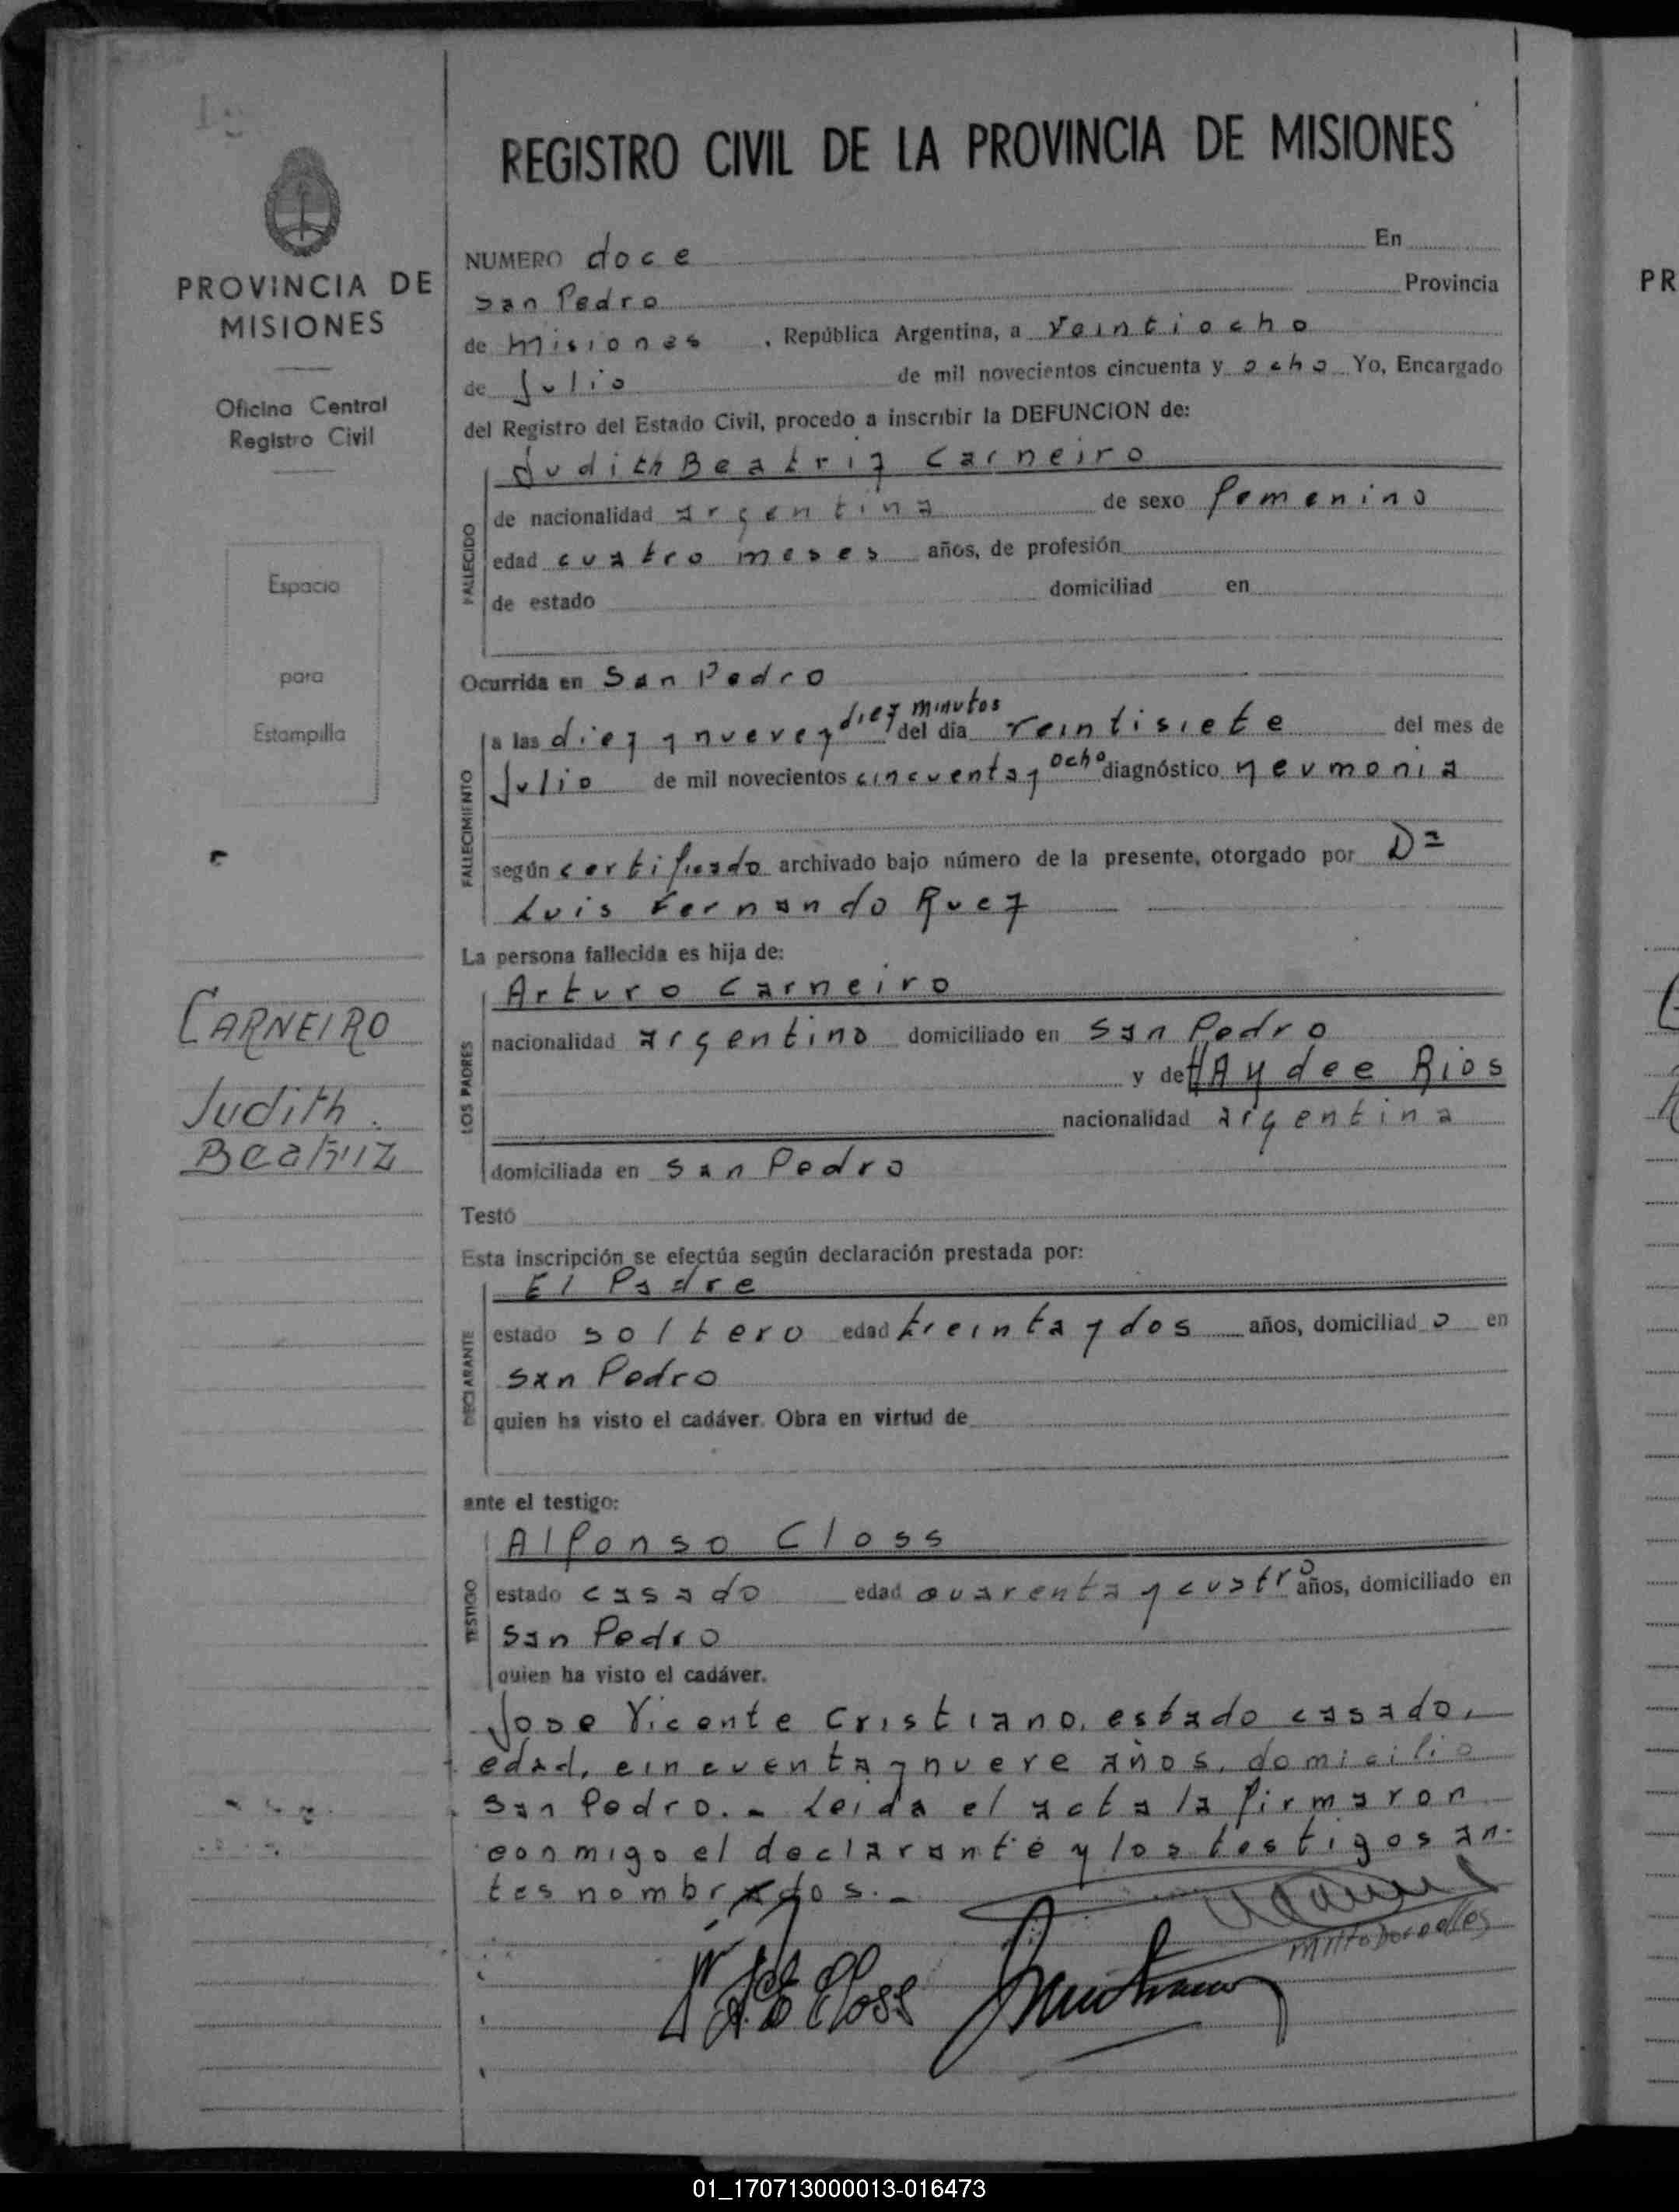 REGISTRO CIVIL DE LA PROVINCIA DE MISIONES
PROVINCIA DE
MISIONES
Oficina Central
Registro Civil
Espacio
para
Estampilla
CARNEIRO
Judith
Beatriz
NUMERO doce En
San Pedro Provincia
de Misiones , República Argentina, a Veintiocho
de Julio de mil novecientos cincuenta y ocho Yo, Encargado
del Registro del Estado Civil, procedo a inscribir la DEFUNCION de:
FALLECIDO
Judith Beatriz Carneiro
de nacionalidad argentina de sexo femenino
edad cuatro meses años, de profesión
de estado domiciliad en
Ocurrida en San Pedro
FALLECIMIENTO
a las diez y nueve y diez minutos del día veintisiete del mes de
Julio de mil novecientos cincuenta y ocho diagnóstico neumonia
según certificado archivado bajo número de la presente, otorgado por D=
Luis Fernando Ruez
La persona fallecida es hija de:
LOS PADRES
Arturo Carneiro
nacionalidad argentino domiciliado en San Pedro
y de HAydee Rios
nacionalidad argentina
domiciliada en San Pedro
Testó
Esta inscripción se efectúa según declaración prestada por:
DECLARANTE
El Padre
estado soltero edad treinta y dos años, domiciliad o en
San Pedro
quien ha visto el cadáver. Obra en virtud de
ante el testigo:
TESTIGO
Alfonso Closs
estado casado edad cuarenta y cuatro años, domiciliado en
San Pedro
quien ha visto el cadáver.
Jose Vicente Cristiano, estado casado,
edad, cincuenta y nueve años, domicilio
San Pedro.- Leida el acta la firmaron
conmigo el declarante y los testigos an-
tes nombrados.-
Closs
PR
01_170713000013-016473